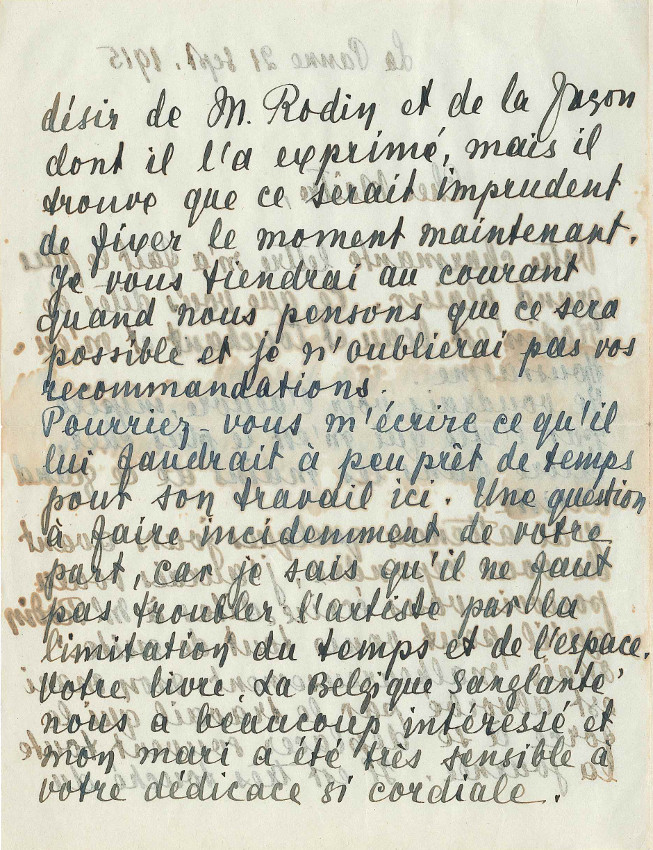 désir de M. Rodin et de la façon
dont il l'a exprimé, mais il
trouve que ce serait imprudent
de fixer le moment maintenant.
Je vous tiendrai au courant
quand nous pensons que ce sera
possible et je n'oublierai pas vos
recommandations.
Pourriez-vous m'écrire ce qu'il
lui faudrait à peuprêt de temps
pour son travail ici. Une question
à faire incidemment de votre
part, car je sais qu'il ne faut
pas troubler l'artiste par la
limitation du temps et de l'espace.
Votre livre "La Belgique Sanglante"
nous a beaucoup intéressé et
mon mari a été très sensible à
votre dédicace si cordiale.